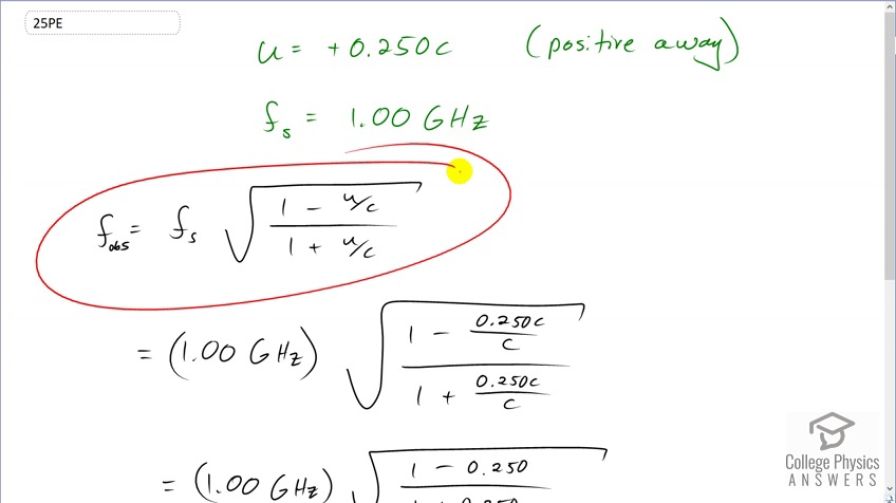 25PE
u = +0.250c (positive away)
f_s = 1.00 GHz
f_obs = f_s √((1 - u/c)/(1 + u/c))
= (1.00 GHz) √((1 - 0.250c/c)/(1 + 0.250c/c))
= (1.00 GHz) √((1 - 0.250)/(1 + 0.250))
College Physics
ANSWERS